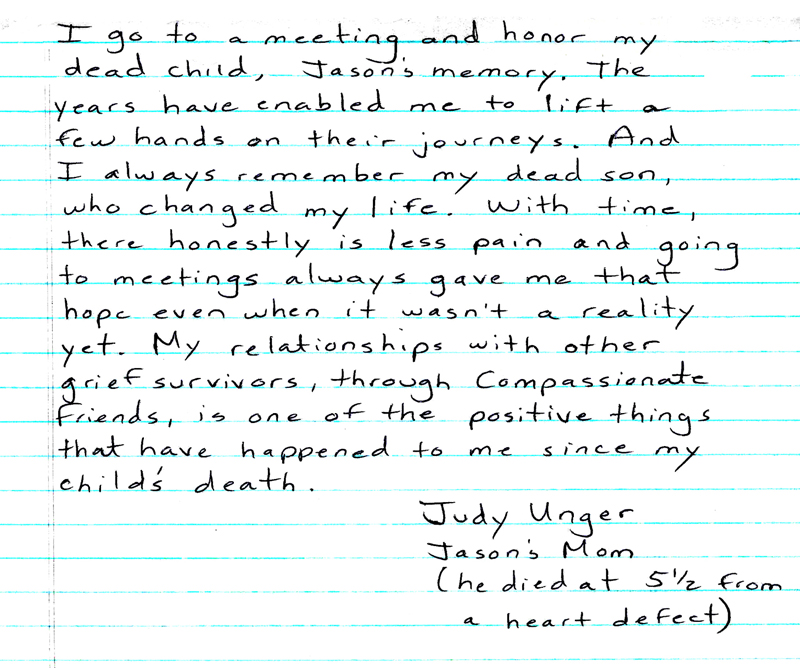 I go to a meeting and honor my
dead child, Jason's memory. The
years have enabled me to lift a
few hands on their journeys. And
I always remember my dead son,
who changed my life. With time,
there honestly is less pain and going
to meetings always gave me that
hope even when it wasn't a reality
yet. My relationships with other
grief survivors, through Compassionate
Friends, is one of the positive things
that have happened to me since my
child's death.
Judy Unger
Jason's Mom
(he died at 5 1/2 from
a heart defect)